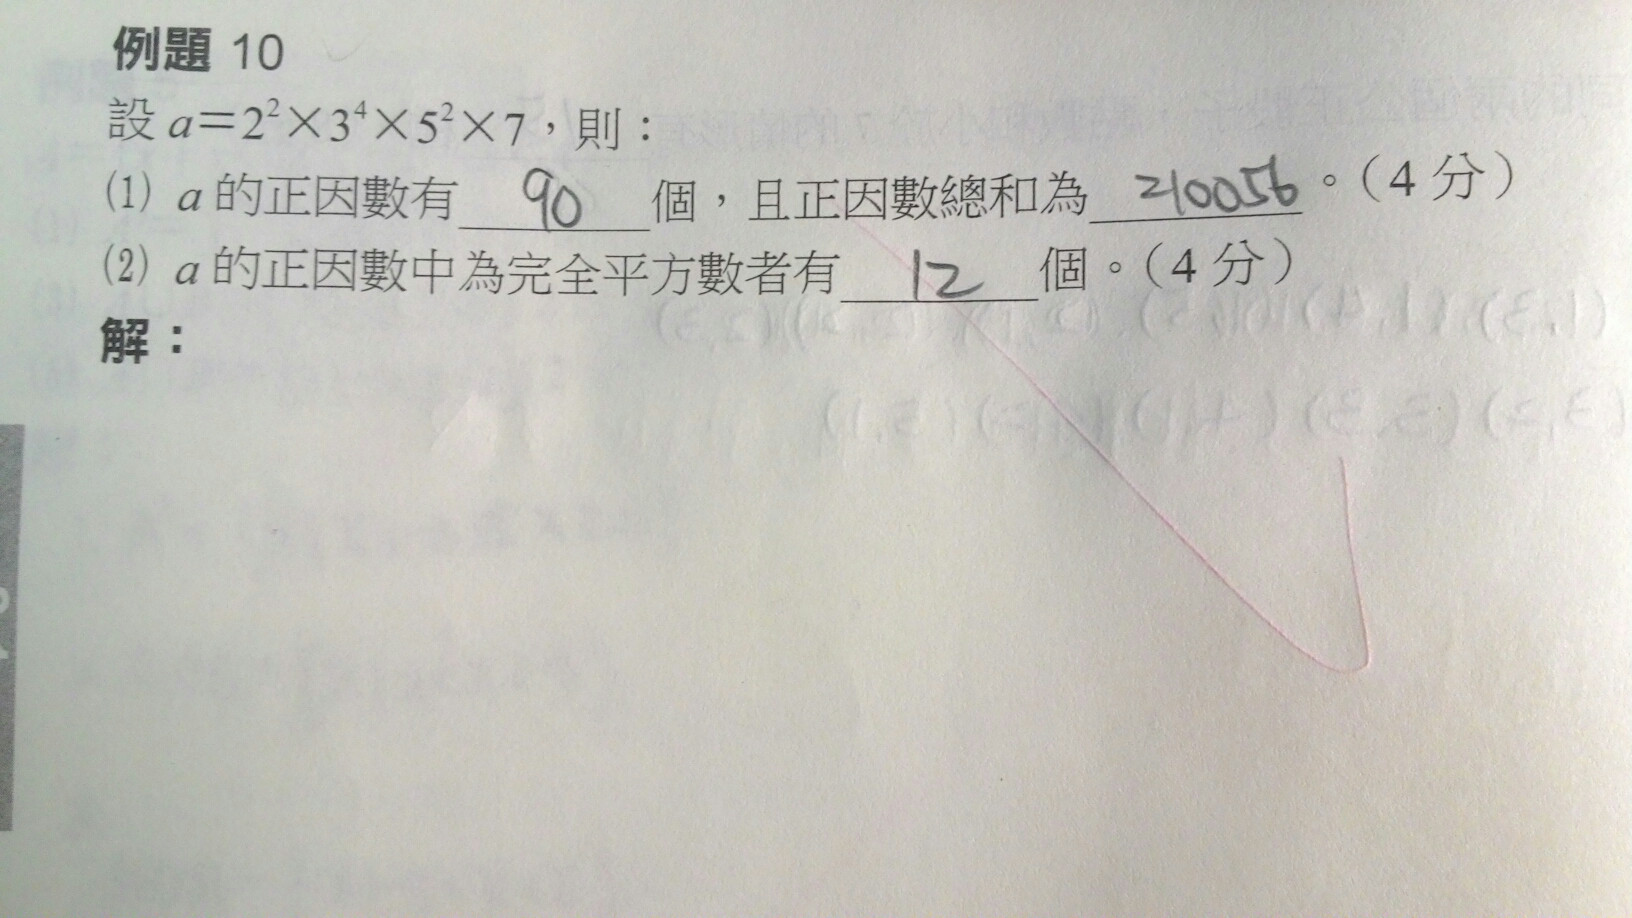 例題 10
設 a=2²×3⁴×5²×7，則：
(1) a 的正因數有 90 個，且正因數總和為 210056。（4 分）
(2) a 的正因數中為完全平方數者有 12 個。（4 分）
解：